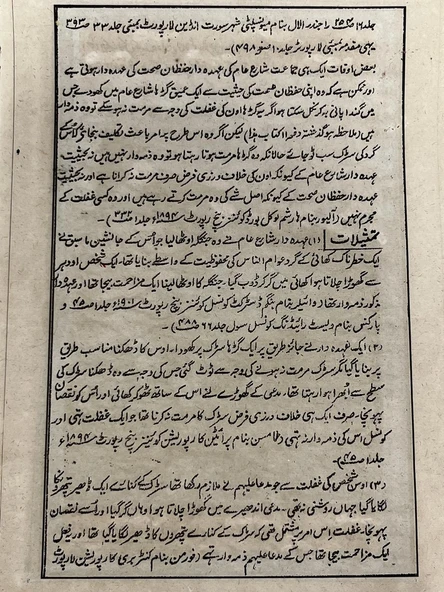 جلد ۱۶ ص۲۵۴ راجندر الال بنام میونسپلٹی شہر سورت انڈین لا رپورٹ بمبئی جلد ۳۳ ص۳۹۳
یہی مقدمہ بمبئی لا رپورٹر جلد ۱۰
بعض اوقات ایک ہی جماعت شارع عام کی عہدہ دار حفظان صحت کی عہدہ دار ہوتی ہے
اور ممکن ہے کہ وہ اپنی حفظان صحت کی حیثیت سے ایک عمیق گڑھا شارع عام میں کھودے جس میں
گندا پانی ہو کر نکل سکتا ہو اگر یہ گڑھا اون کی غفلت کی وجہ سے مرمت نہ ہو سکے تو وہ ذمہ دار
ہیں (ملاحظہ ہو گذشتہ دفعہ الکتاب ہذا) لیکن اگر وہ اس طرح پر امر باعث تکلیف نہ ہو جائے کہ اس کے
گرد کی سڑک سب ٹوٹ جائے حالانکہ وہ گڑھا مرمت ہوتا رہتا ہو تو وہ ذمہ دار نہیں ہیں نہ بحیثیت
عہدہ دار شارع عام کے کیونکہ اون کی خلاف ورزی فرض صرف مرمت نہ کرانا ہے اور نہ بحیثیت
عہدہ دار حفظان صحت کے کیونکہ اصل شے کی وہ مرمت کرتے رہے ہیں اور وہ کسی غفلت کے
مجرم نہیں (الیور بنام ہارشم لوکل بورڈ کوئنز بنچ رپورٹ ۱۸۹۴ء جلد ۱ ص۳۳۲)۔
تمثیلات (۱) عہدہ دار شارع عام نے وہ جنگلا اوٹھا لیا جو اُس کے جانشین ما سبق نے
ایک خطرناک کھائی کے گرد عوام الناس کی محفوظیت کے واسطے بنایا تھا۔ ایک شخص اودھر
سے گھوڑا چلاتا ہوا کھائی میں گر کر ڈوب گیا۔ جنگلہ کا اوٹھا لینا ایک مزاحمت بیجا تھا اور عہدہ دار
مذکور ذمہ دار تھا (وائیلر بنام بنگلے ڈسٹرکٹ کونسل کوئنز بنچ رپورٹ ۱۹۰۱ء جلد ۱ ص۴۵ و
بارکنس بنام ولیسٹ رائیڈنگ کونسل سول جلد ۶۶ ص۴۸۸)۔
(۲) ایک عہدہ دار نے جائز طریق پر ایک گڑھا سڑک پر کھودا۔ اوس کا ڈھکنا مناسب طریق
پر بنایا گیا مگر سڑک مرمت نہ ہونے کی وجہ سے ٹوٹ گئی جس کی وجہ سے وہ ڈھکنا سڑک کی
سطح سے اُبھرا ہوا رہتا تھا۔ مدعی کے گھوڑے نے اس کے ساتھ ٹھوکر کھائی اور اُس کو نقصان
پہونچا۔ صرف ایک ہی خلاف ورزی فرض سڑک کا مرمت نہ کرنا تھا جو ایک غفلت تھی اور
کونسل اس کی ذمہ دار نہ تھی (طامسن بنام برائیٹن کارپوریشن کوئنز بنچ رپورٹ ۱۸۹۴ء
جلد ۱ ص۳۳۲)۔
(۳) اوس شخص کی غفلت سے جو مدعا علیہم نے ملازم رکھا تھا۔ سڑک کے کنارے ایک ڈھیر پتھروں کا
لگایا گیا جہاں روشنی نہ تھی۔ مدعی اندھیرے میں گھوڑا چلاتا ہوا وہاں گر گیا اور اسے نقصان
پہونچا۔ غفلت اِس امر پر مشتمل تھی کہ سڑک کے کنارے پتھروں کا ڈھیر لگایا گیا تھا اور یہ فعل
ایک مزاحمت بیجا تھا جس کے مدعا علیہم ذمہ وار تھے (فورمن بنام کنٹربری کارپوریشن لا رپورٹ